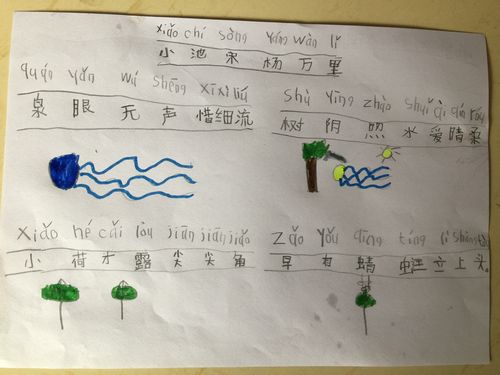 xiǎo chí sòng yáng wàn lǐ
小 池 宋 杨 万 里
quán yǎn wú shēng xī xì liú
泉 眼 无 声 惜 细 流
shù yīng zhào shuǐ ài róu
树 阴 照 水 爱 晴 柔
xiǎo hé cái lòu jiān jiān jiǎo
小 荷 才 露 尖 尖 角
zǎo yǒu qīng tíng lì shàng
早 有 蜻 蜓 立 上 头。